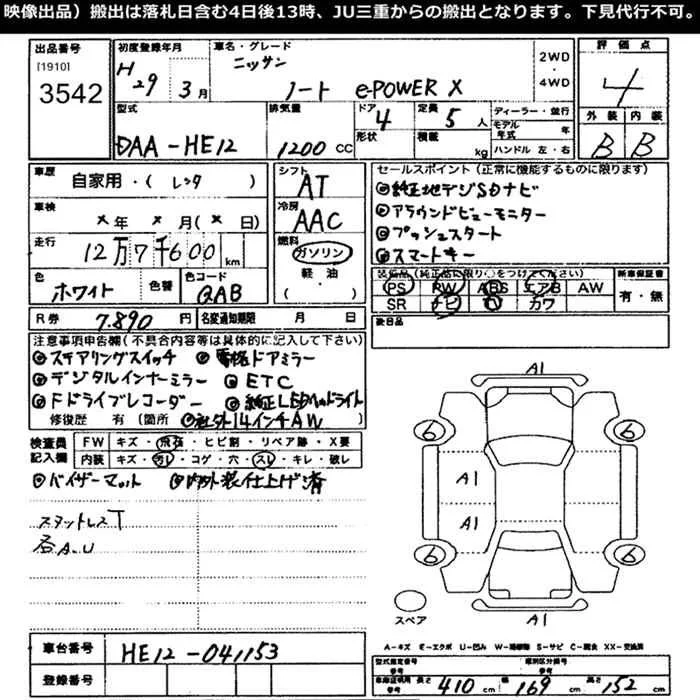 映像出品）搬出は落札日含む4日後13時、JU三重からの搬出となります。下見代行不可。
出品番号
[1910]
3542
初度登録年月
H 29 3 月
車名・グレード
ニッサン
ノート e-POWER X
2WD
・
4WD
評価点
4
外装 内装
B B
型式
DAA-HE12
排気量
1200 CC
ドア 4
形状
定員 5 人
積載 kg
ディーラー・並行
モデル年式 年
ハンドル 左・右
車歴
自家用・( レンタ )
車検
× 年 × 月 ( × 日)
走行
12万7千600 km
色
ホワイト
色替
色コード
QAB
シフト
AT
冷房
AAC
燃料
ガソリン
・
軽油
( )
セールスポイント（正常に機能するものに限ります）
◎純正地デジSDナビ
◎アラウンドビューモニター
◎プッシュスタート
◎スマートキー
装備品（純正品に限り○をつけてください）
PS PW ABS エアB AW
SR ナビ カワ
新車保証書
有・無
後日品
R券 7,890 円
名変通知期限 月 日
注意事項申告欄(不具合内容等は具体的に記入して下さい)
◎ステアリングスイッチ ◎電格ドアミラー
◎デジタルインナーミラー ◎ETC
◎Fドライブレコーダー ◎純正LEDヘッドライト
修復歴 有 (箇所 ◎社外14インチAW
検査員記入欄
FW キズ・飛石・ヒビ割・リペア跡・X要
内装 キズ・汚レ・コゲ・穴・スレ・キレ・破レ
◎バイザーマット ◎内外装仕上げ済
スタットレスT
各A.U
A1
6 6
A1
A1
6 6
A1
スペア
A-キズ E-エクボ U-凹み W-補修跡 S-サビ C-腐食 XX-交換済
車台番号 HE12-041153
登録番号
型式指定番号
参考
類別区分番号
参考
車検証明用 長さ
参考
410 cm
幅 169 cm
高さ 152 cm